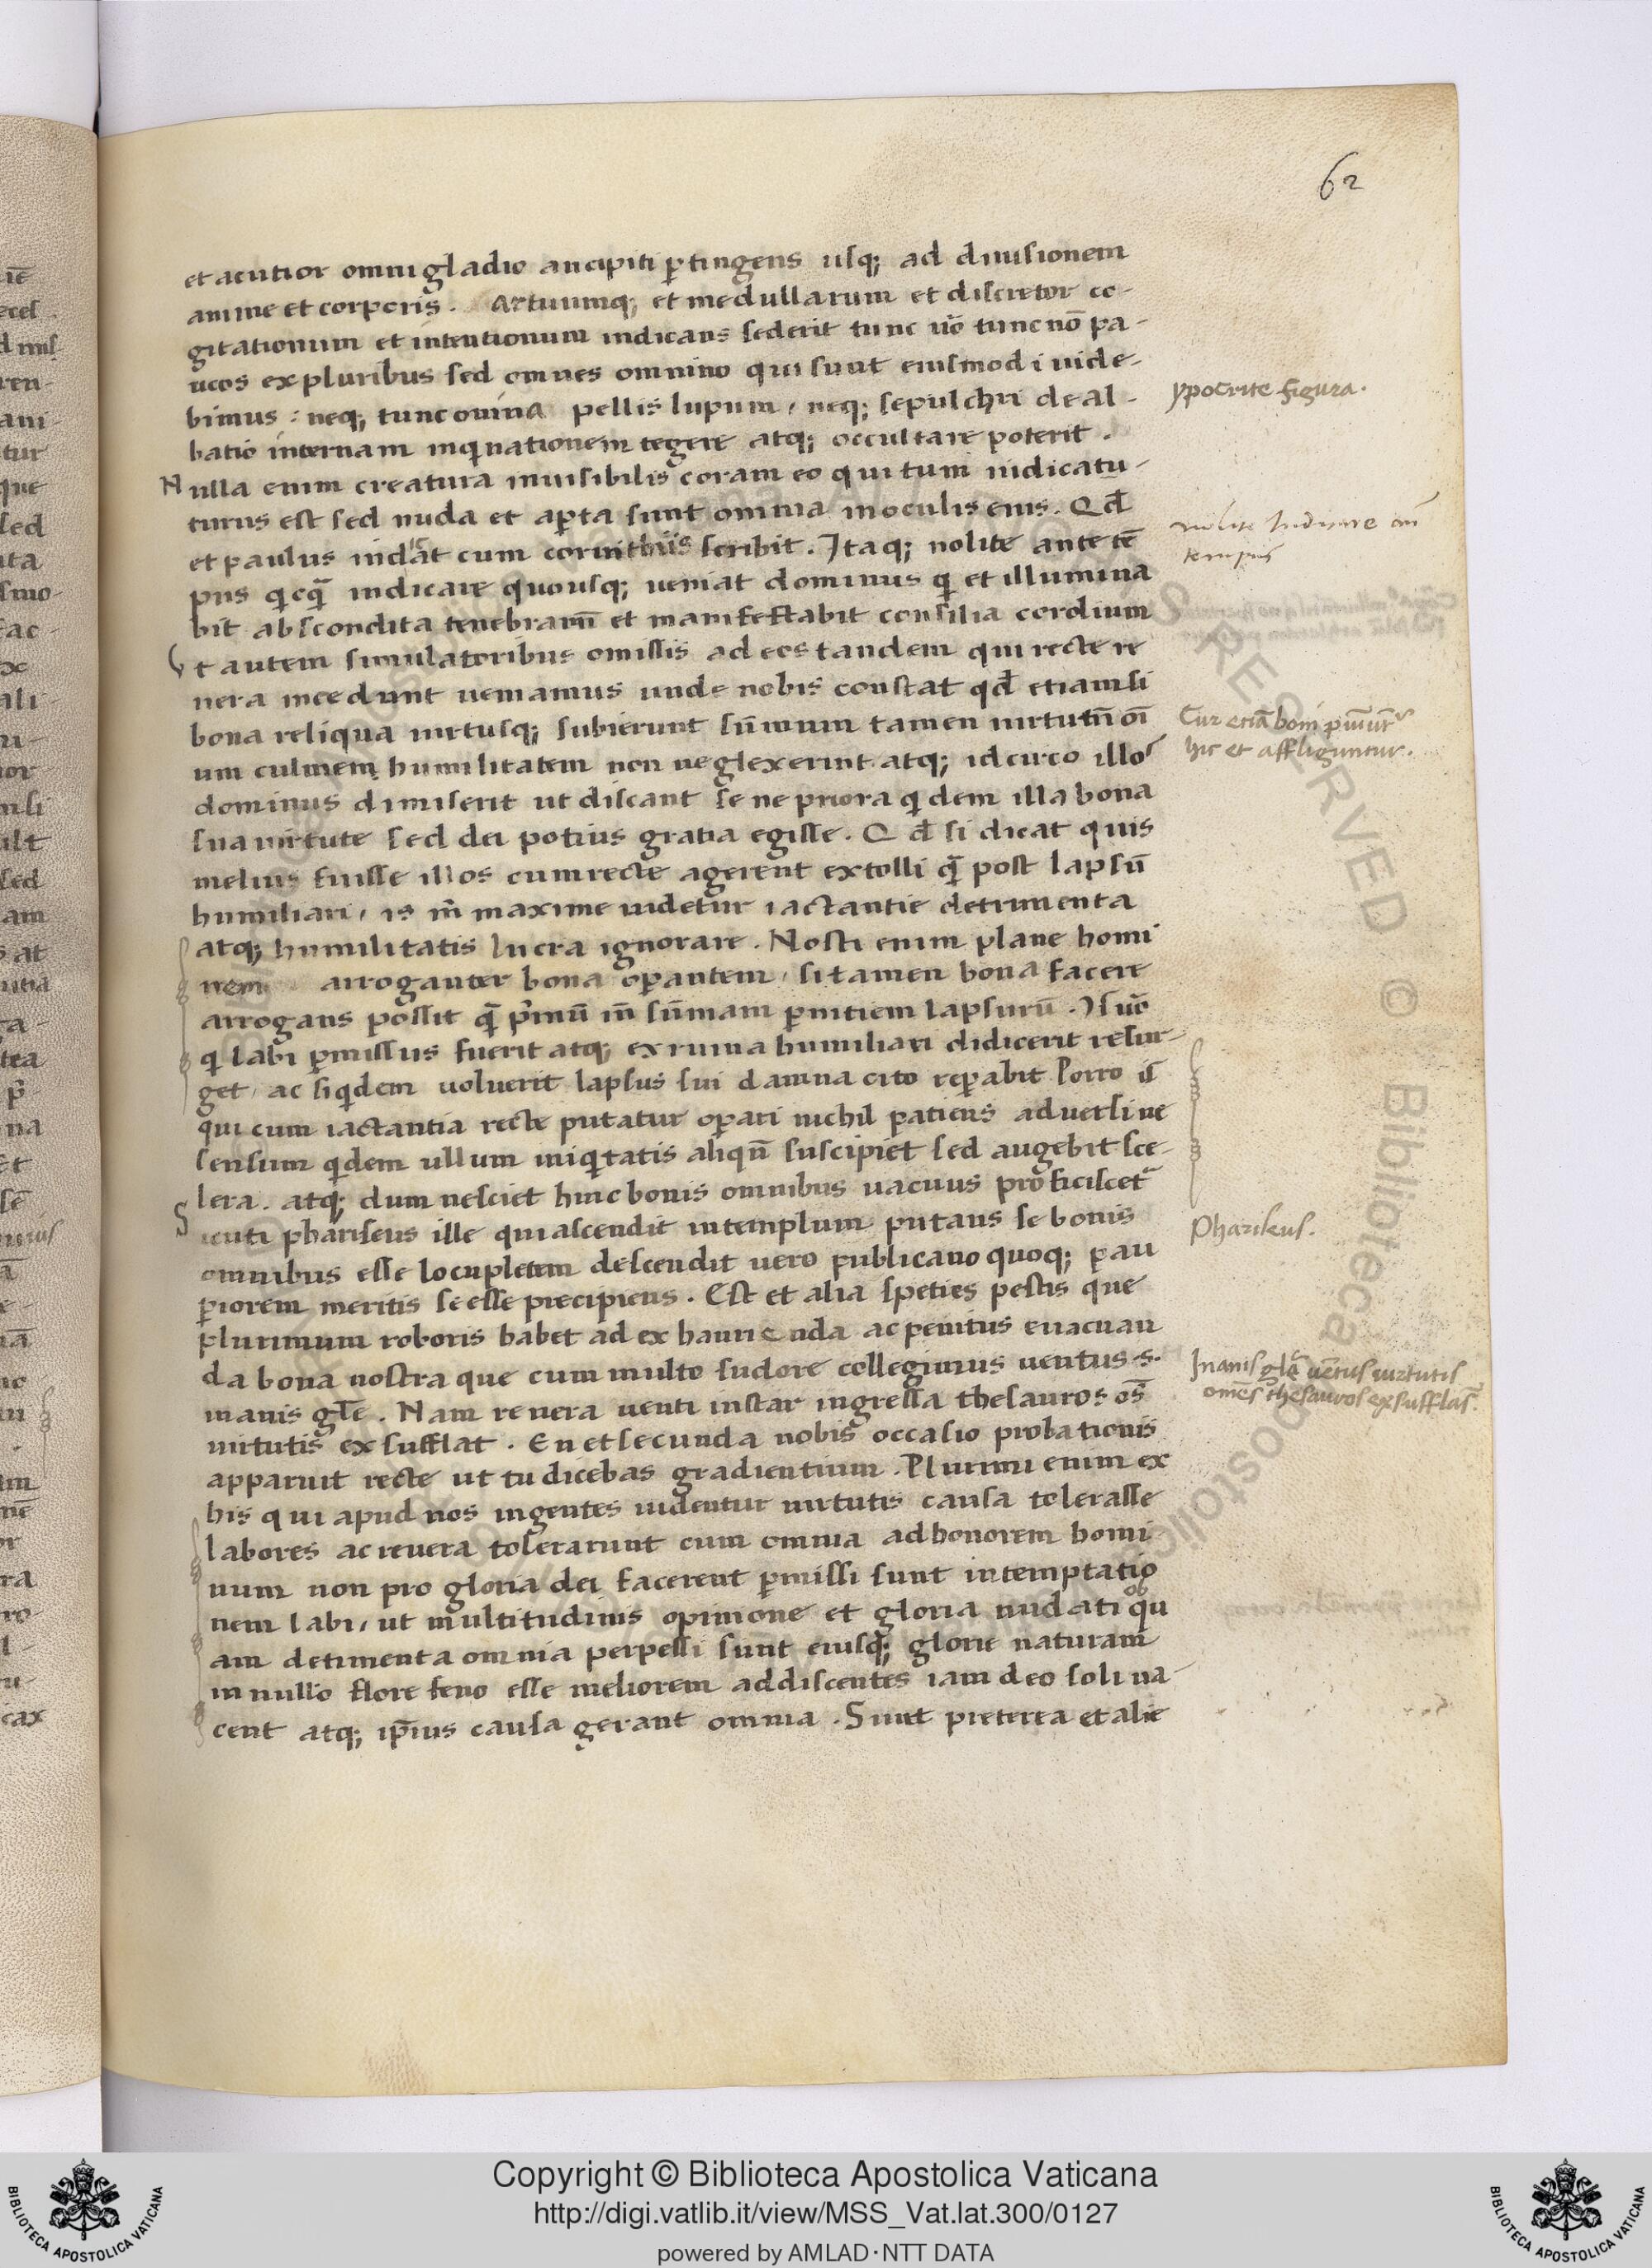 62
et acutior omni gladio ancipiti ꝑtingens usq; ad diuisionem
anime et corporis. Artuumq; et medullarum et discretor co-
gitationum et intentionum iudicans sederit tunc uo̅ tunc no̅ pa-
ucos ex pluribus sed omnes omnino qui sunt eiusmodi uide-
bimus: neq; tunc ouina pellis lupum, neq; sepulchri deal-
batio internam inqnationem tegere atq; occultare poterit.
ypocrite figura.
Nulla enim creatura inuisibilis coram eo qui tum iudicatu-
turus est sed nuda et aꝑta sunt omnia in oculis eius. Qd̅
et paulus indicat cum corinthiis scribit. Itaq; nolite ante te̅
pus qicq̅ iudicare quousq; ueniat dominus qi et illumina
bit abscondita tenebraru̅ et manifestabit consilia cordium
Vt autem simulatoribus omissis ad eos tandem qui recte re
uera incedunt ueniamus unde nobis constat qd̅ etiamsi
bona reliqua uirtusq; subierunt su̅mum tamen uirtutu̅ oi̅
um culmen humilitatem non neglexerint atq; idcirco illos
Cur etia̅ boni
hic et affliguntur.
dominus dimiserit ut discant se ne priora qidem illa bona
sua uirtute sed dei potius gratia egisse. Qd̅ si dicat quis
melius fuisse illos cum recte agerent extolli q̅ post lapsu̅
humiliari, is m̅ maxime uidetur iactantie detrimenta
atq; humilitatis lucra ignorare. Nosti enim plane homi
nem arroganter bona oꝑantem, si tamen bona facere
arrogans possit q̅ pimu̅ in̅ su̅mam ꝑnitiem lapsuru̅. Is uo̅
qi labi ꝑmissus fuerit atq; ex ruina humiliari didicerit resur-
get, ac siqidem uoluerit lapsus sui damna cito reꝑabit. Porro is
qui cum iactantia recte putatur oꝑari nichil ꝑatiens aduersi ne
sensum qidem ullum iniqitatis aliqu̅ suscipiet sed augebit sce-
lera. atq; dum nesciet hinc bonis omnibus uacuus proficiscet
Sicuti phariseus ille qui ascendit in templum putans se bonis
Phariseus.
omnibus esse locupletem descendit uero publicano quoq; ꝑau
ꝑiorem meritis se esse precipiens. Est et alia speties pestis que
plurimum roboris habet ad exhaurienda ac penitus euacuan
da bona nostra que cum multo sudore collegimus uentus .s.
inanis gl̅e. Nam reuera uenti instar ingressa thesauros os̅
Inanis gl̅a ue̅tus uirtutis
ome̅s thesauros exsufflas.
uirtutis exsufflat. En et secunda nobis occasio probationis
apparuit recte ut tu dicebas gradientium. Plurimi enim ex
his qui apud nos ingentes uidentur uirtutis causa tolerasse
labores ac reuera tolerarunt cum omnia ad honorem homi
num non pro gloria dei facerent ꝑmissi sunt in temptatio
nem labi, ut multitudinis opinione et gloria nudati ob qu
am detimenta omnia perpessi sunt eiusq; glorie naturam
in nullo flore feno esse meliorem addiscentes iam deo soli ua-
cent atq; ip̅ius causa gerant omnia. Sunt preterea et alie
Copyright © Biblioteca Apostolica Vaticana
http://digi.vatlib.it/view/MSS_Vat.lat.300/0127
powered by AMLAD·NTT DATA
BIBLIOTECA APOSTOLICA VATICANA
BIBLIOTECA APOSTOLICA VATICANA